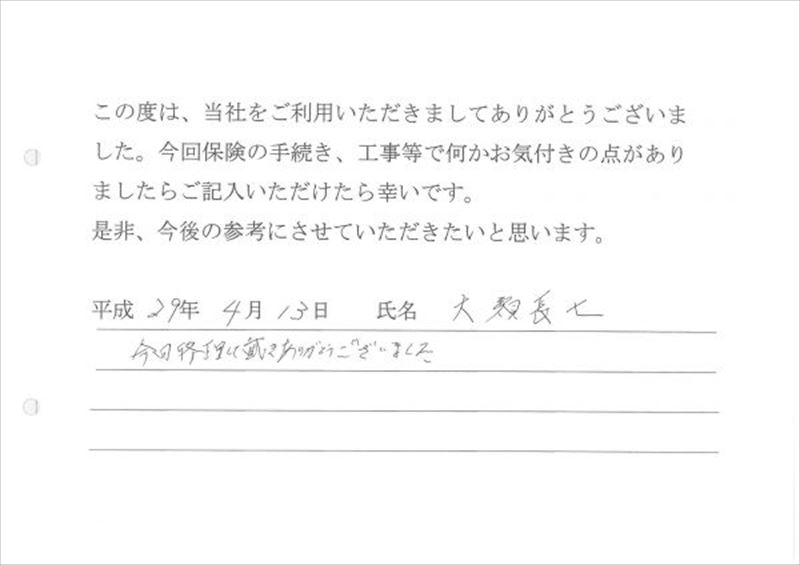 この度は、当社をご利用いただきましてありがとうございま
した。今回保険の手続き、工事等で何かお気付きの点があり
ましたらご記入いただけたら幸いです。
是非、今後の参考にさせていただきたいと思います。
平成 29年 4月 13日 氏名 大 長七
今回修理して戴きありがとうございました